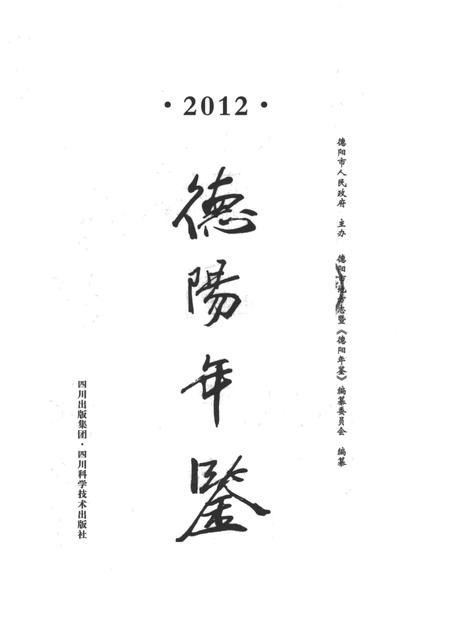 ·2012·
德阳市人民政府 主办 德阳市地方志暨《德阳年鉴》编纂委员会 编纂
德陽年鑒
四川出版集团·四川科学技术出版社